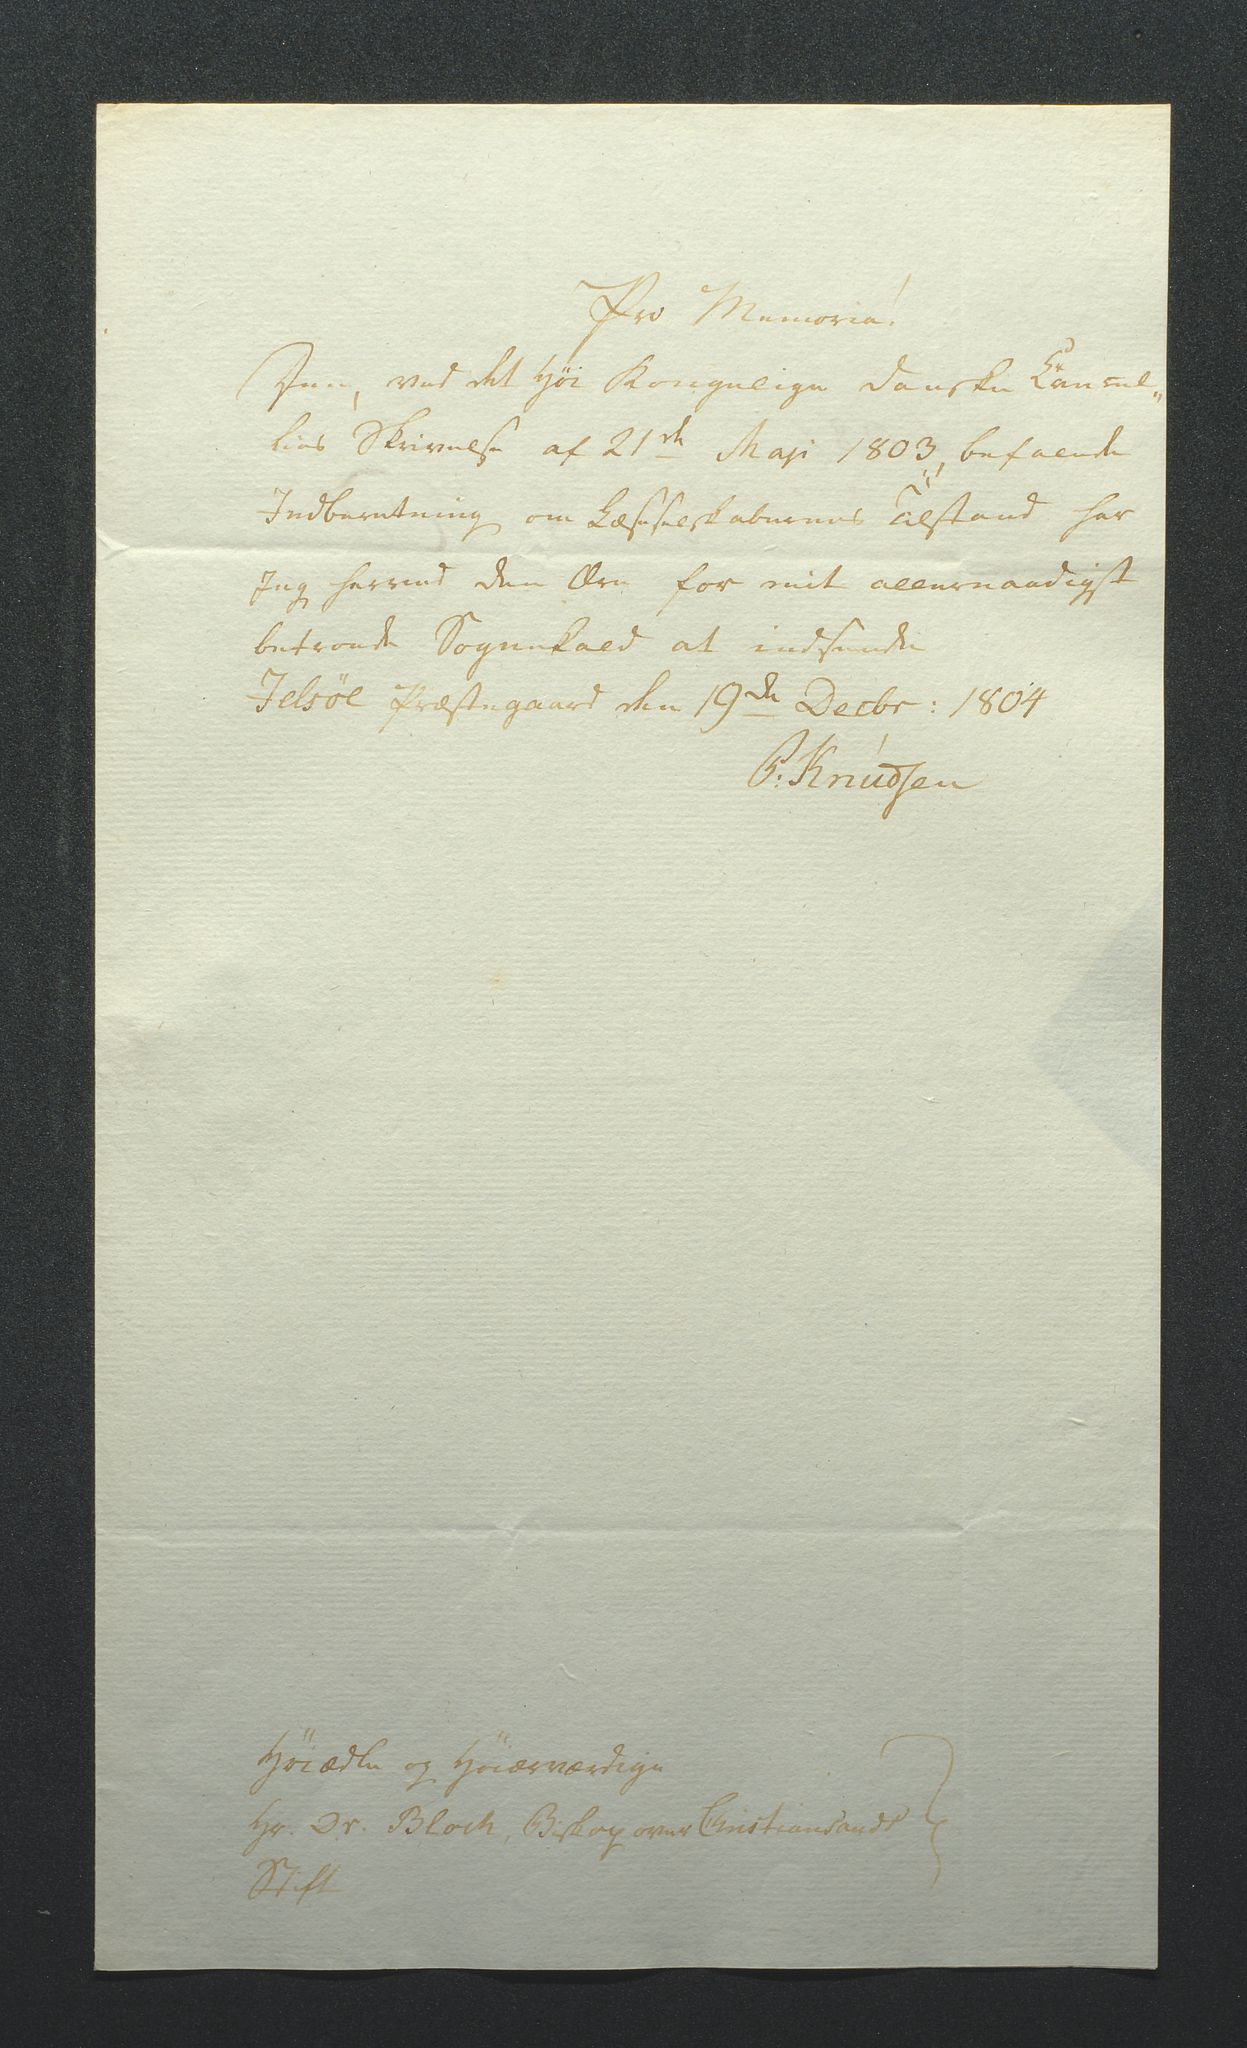 Pro Memoria!
Den, ved det høi Kongelige Danske Cancel„
lies Skrivelse af 21de Maji 1803, befalede
Indberetning om Læseselskabernes Tilstand har
Jeg herved den Ære for mit allernaadigst
betroede Sognekald at indsende
Jelsöe Præstegaard den 19de Decbr: 1804
P. Knudsen
Höiædle og Höiærværdige
Hr. Dr. Bloch, Biskop over Christiansands
Stift